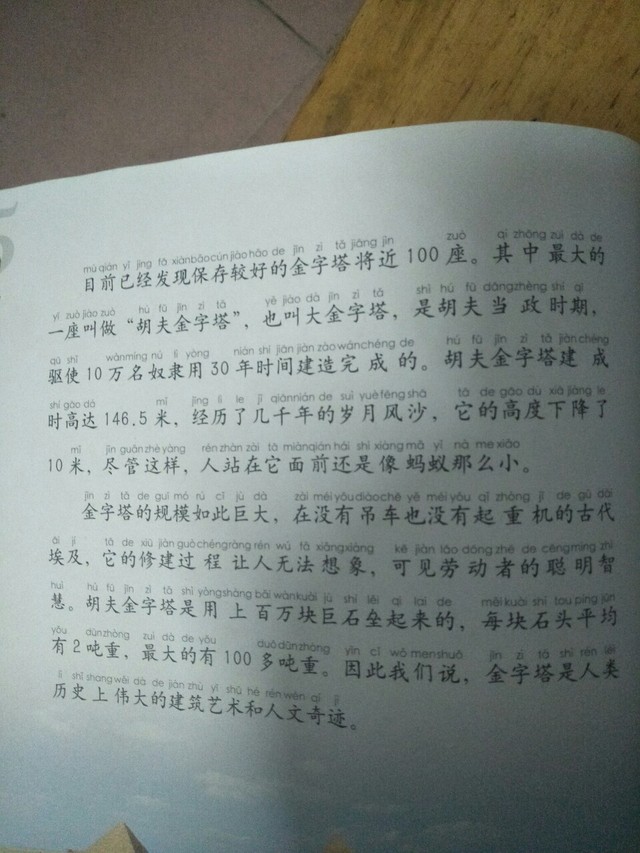 mù qián yǐ jīng fā xiàn bǎo cún jiào hǎo de jīn zì tǎ jiāng jìn zuò qí zhōng zuì dà de
目前已经发现保存较好的金字塔将近100座。其中最大的
yī zuò jiào zuò hú fū jīn zì tǎ yě jiào dà jīn zì tǎ shì hú fū dāng zhèng shí qī
一座叫做“胡夫金字塔”，也叫大金字塔，是胡夫当政时期，
qū shǐ wàn míng nú lì yòng nián shí jiān jiàn zào wán chéng de hú fū jīn zì tǎ jiàn chéng
驱使10万名奴隶用30年时间建造完成的。胡夫金字塔建成
shí gāo dá mǐ jīng lì le jǐ qiān nián de suì yuè fēng shā tā de gāo dù xià jiàng le
时高达146.5米，经历了几千年的岁月风沙，它的高度下降了
mǐ jǐn guǎn zhè yàng rén zhàn zài tā miàn qián hái shì xiàng mǎ yǐ nà me xiǎo
10米，尽管这样，人站在它面前还是像蚂蚁那么小。
jīn zì tǎ de guī mó rú cǐ jù dà zài méi yǒu diào chē yě méi yǒu qǐ zhòng jī de gǔ dài
金字塔的规模如此巨大，在没有吊车也没有起重机的古代
āi jí tā de xiū jiàn guò chéng ràng rén wú fǎ xiǎng xiàng kě jiàn láo dòng zhě de cōng míng zhì
埃及，它的修建过程让人无法想象，可见劳动者的聪明智
huì hú fū jīn zì tǎ shì yòng shàng bǎi wàn kuài jù shí lěi qǐ lái de měi kuài shí tou píng jūn
慧。胡夫金字塔是用上百万块巨石垒起来的，每块石头平均
yǒu dūn zhòng zuì dà de yǒu duō dūn zhòng yīn cǐ wǒ men shuō jīn zì tǎ shì rén lèi
有2吨重，最大的有100多吨重。因此我们说，金字塔是人类
lì shǐ shàng wěi dà de jiàn zhù yì shù hé rén wén qí jì
历史上伟大的建筑艺术和人文奇迹。